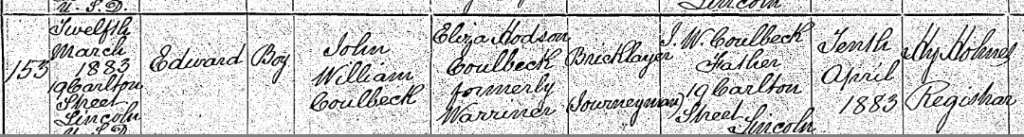 U. S. D.
Lincoln
153
Twelfth
March
1883
19 Carlton
Street
Lincoln
U. S. D.
Edward
Boy
John
William
Coulbeck
Eliza Hodson
Coulbeck
formerly
Warriner
Bricklayer
(Journeyman)
J. W. Coulbeck
Father
19 Carlton
Street
Lincoln
Tenth
April
1883
Hy Holmes
Registrar